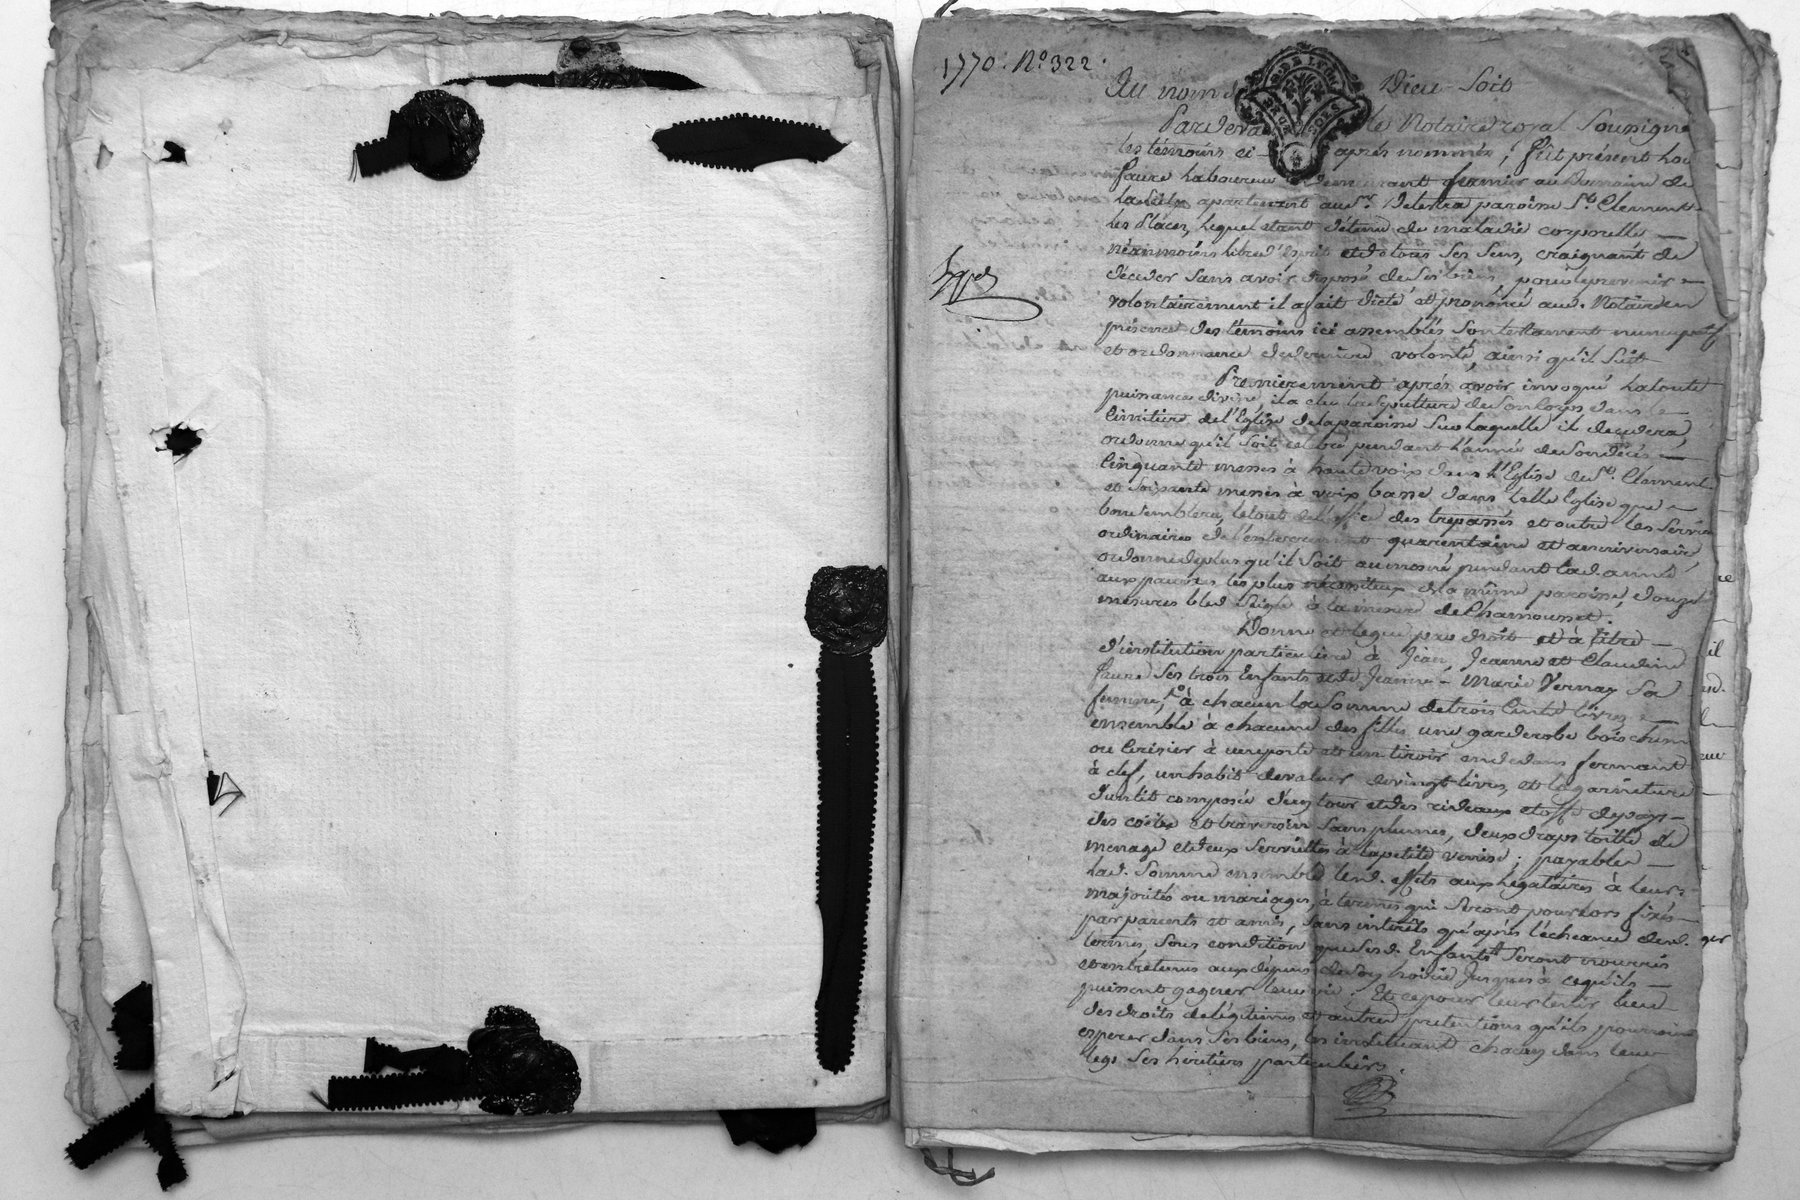 1770. N.º 322.
Au nom de Dieu soit
Pardevant le Notaire royal soussigné
les témoins ci-après nommés, fut présent
faure Laboureur demeurant fermier au Domaine de
apartenant au Sr. paroisse St. Clement
les places, lequel étant détenu de maladie corporelle —
néanmoins libre d'esprit et de tous ses sens, craignant de
décéder sans avoir disposé de ses biens, pour prévenir —
volontairement il a fait dicté et prononcé aud. Notaire en
présence des témoins ici assemblés son testament nuncupatif
et ordonnance de derniere volonté, ainsi qu'il suit
Premierement après avoir invoqué la toute
puissance divine, il a élu la sépulture de son corps dans le —
Cimitiere de l'Eglise de la paroisse sur laquelle il decedera,
ordonne qu'il soit celebré pendant l'année de son décès —
Cinquante messes à haute voix dans l'Eglise de St. Clement
et soixante messes à voix basse dans telle Eglise que —
bon semblera, le tout de l'office des trepassés et outre les services
ordinaires de l'enterrement quarantaine et anniversaire,
ordonne de plus qu'il soit aumosné pendant lad. année
aux pauvres les plus nécessiteux de la même paroisse, douze
mesures bled seigle à la mesure de Chamousset.
Donne et legue par droit et à titre —
d'institution particuliere à Jean, Jeanne et Claudine
faure ses trois Enfants et de Jeanne-Marie Vernay sa
femme, à chacun la somme de trois cents livres —
ensemble à chacune des filles une garderobe bois
ou cerisier à une porte et un tiroir en dedans fermant
à clef, un habit de valeur de vingt livres, et la garniture
d'un lit composée d'un tour et des rideaux etoffe de pays —
des coite et traversin sans plumes, deux draps toille de
menage et deux serviettes à la petite venise; payables —
lad. somme ensemble lesd. effets aux Legataires à leurs
majorités ou mariages, à termes qui seront pour lors fixés —
par parents et amis, sans intérêts qu'après l'échéance desd.
termes, sous condition que sesd. Enfants seront nourris
et entretenus aux dépens de son hoirie jusques à ce qu'ils —
puissent gagner leur vie; Et ce pour leur tenir lieu
des droits de légitimes et autres prétentions qu'ils pourroient
esperer dans ses biens, les instituant chacun dans leur
legs ses héritiers particuliers.